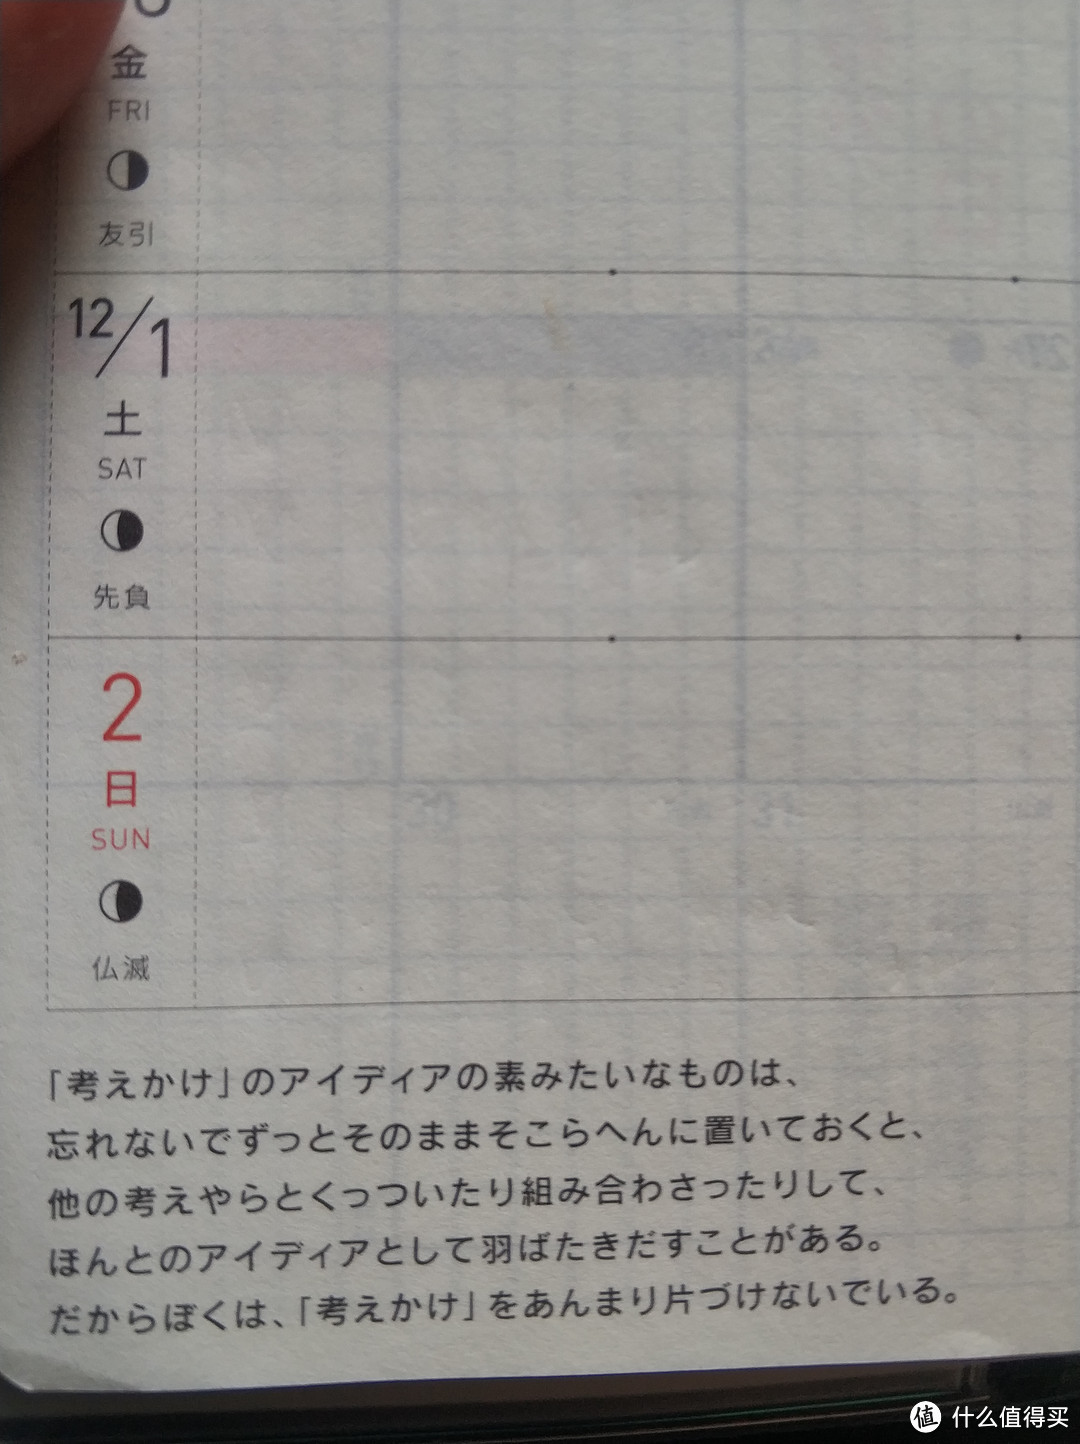 金
FRI
友引
12/1
土
SAT
先負
2
日
SUN
仏滅
「考えかけ」のアイディアの素みたいなものは、
忘れないでずっとそのままそこらへんに置いておくと、
他の考えやらとくっついたり組み合わさったりして、
ほんとのアイディアとして羽ばたきだすことがある。
だからぼくは、「考えかけ」をあんまり片づけないでいる。
值 什么值得买